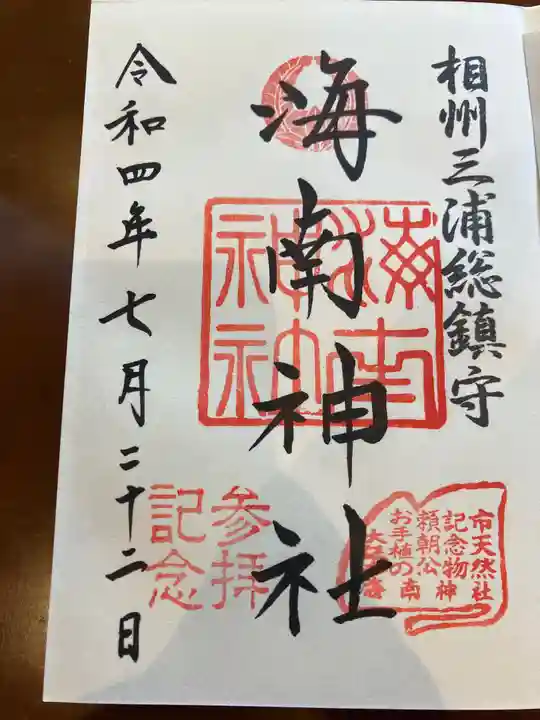 相州三浦総鎮守
海南神社
海南
神社
令和四年七月二十二日
参拝
記念
市天然
記念物
頼朝公
お手植の
海南神社